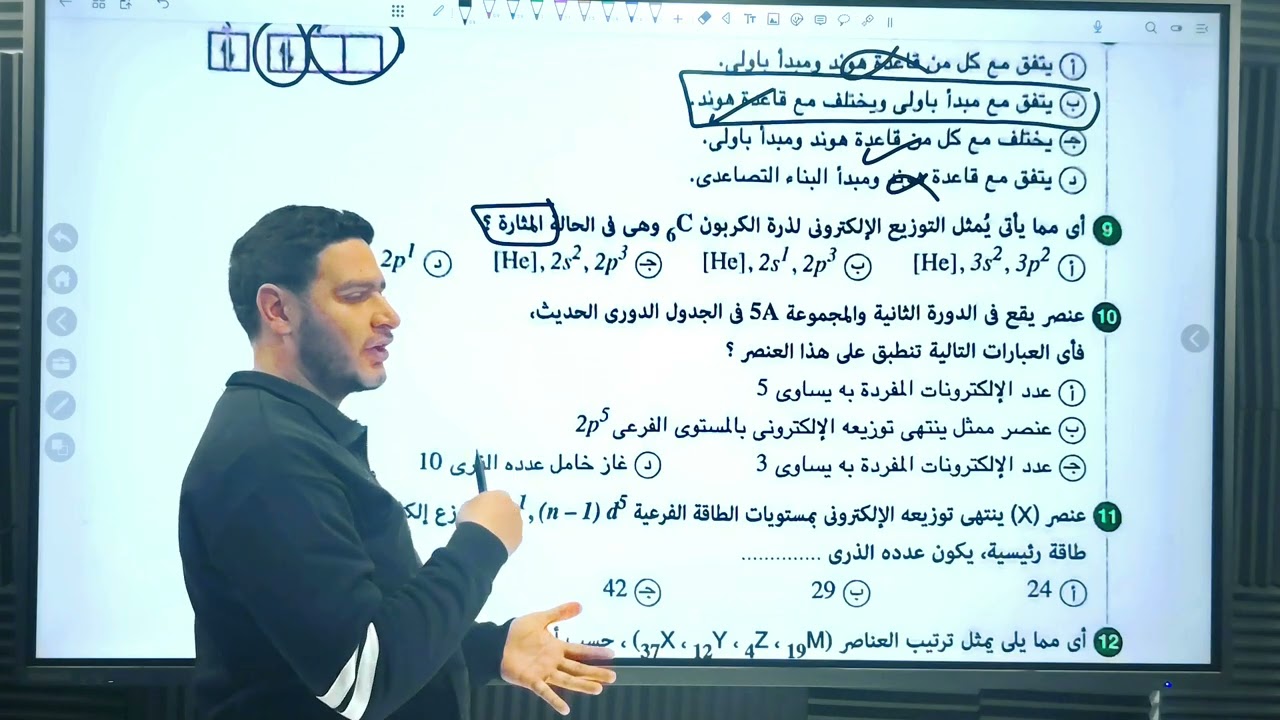 أ يتفق مع كل من قاعدة هوند ومبدأ باولى.
ب يتفق مع مبدأ باولى ويختلف مع قاعدة هوند.
جـ يختلف مع كل من قاعدة هوند ومبدأ باولى.
د يتفق مع قاعدة هوند ومبدأ البناء التصاعدى.
9 أى مما يأتى يُمثل التوزيع الإلكترونى لذرة الكربون ₆C وهى فى الحالة المثارة ؟
أ [He], 3s², 3p² ب [He], 2s¹, 2p³ جـ [He], 2s², 2p³ د 2p¹
10 عنصر يقع فى الدورة الثانية والمجموعة 5A فى الجدول الدورى الحديث،
فأى العبارات التالية تنطبق على هذا العنصر ؟
أ عدد الإلكترونات المفردة به يساوى 5
ب عنصر ممثل ينتهى توزيعه الإلكترونى بالمستوى الفرعى 2p⁵
جـ عدد الإلكترونات المفردة به يساوى 3 د غاز خامل عدده الذرى 10
11 عنصر (X) ينتهى توزيعه الإلكترونى بمستويات الطاقة الفرعية ¹, (n – 1) d⁵
طاقة رئيسية، يكون عدده الذرى ..............
أ 24 ب 29 جـ 42
12 أى مما يلى يمثل ترتيب العناصر (₃₇X ، ₁₂Y ، ₄Z ، ₁₉M) ، حسب